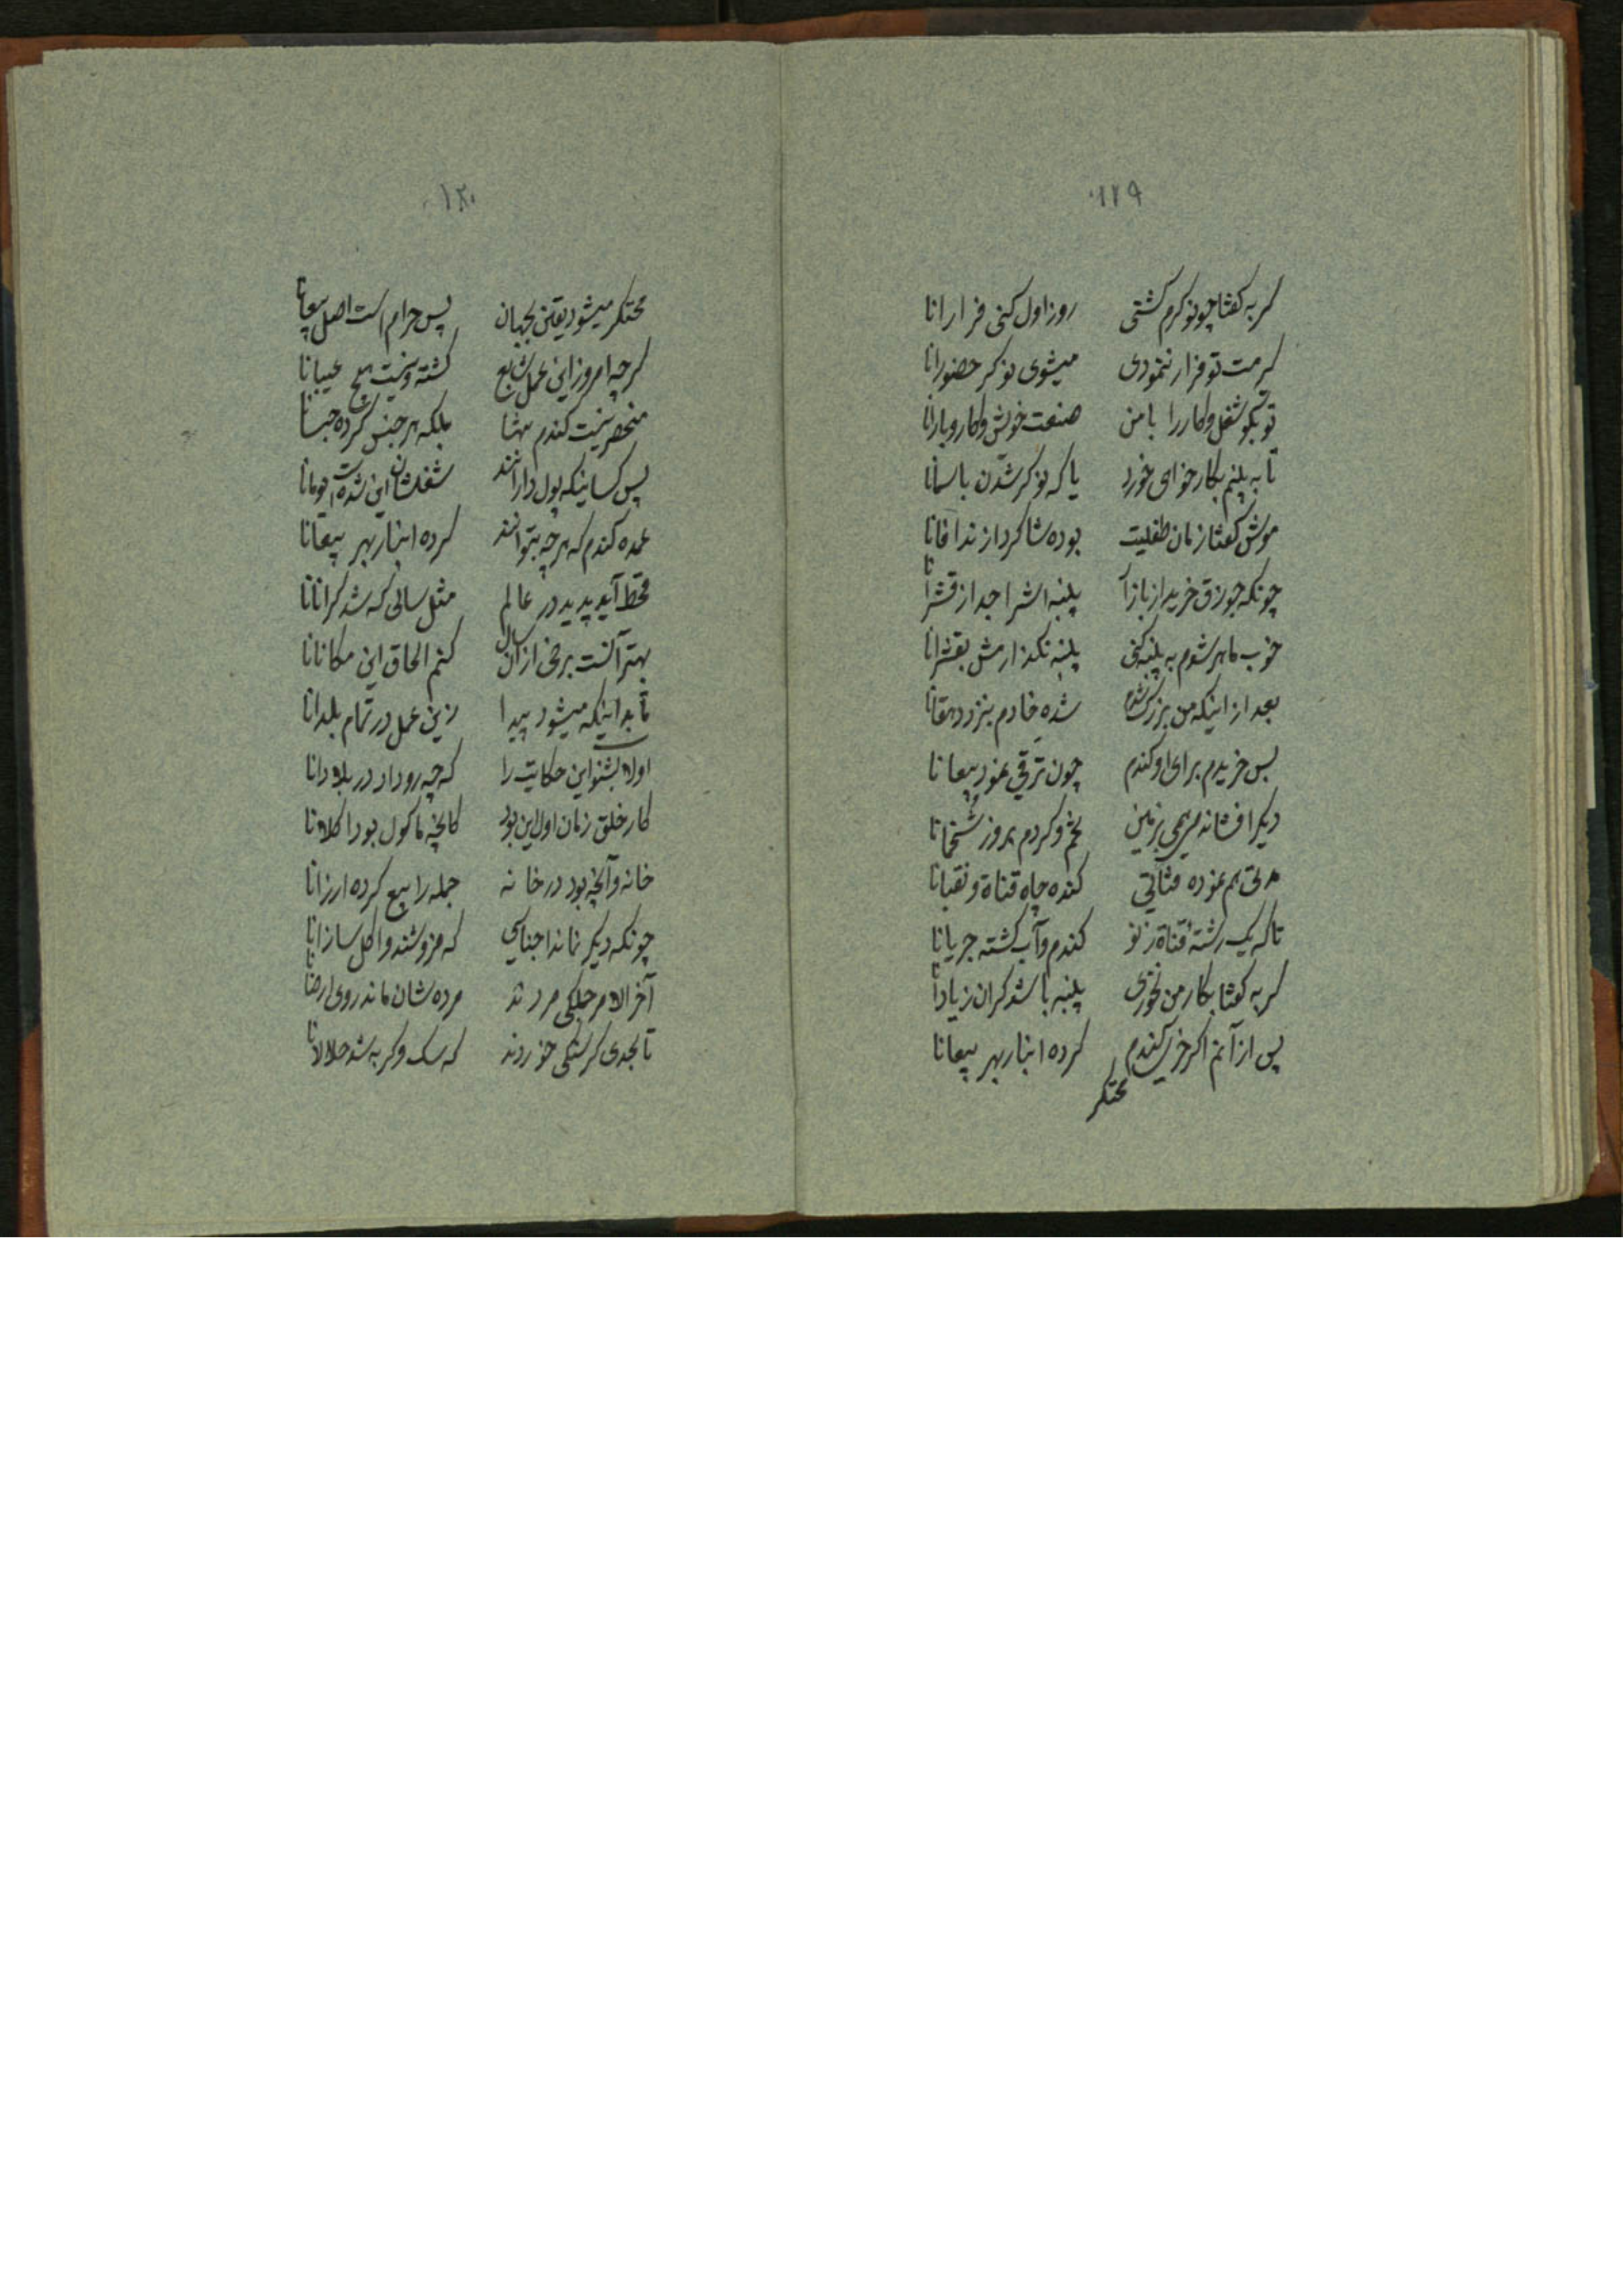 ۱۲۹
گربه گفتا چو نوکرم گشتی روز اول کنی فرارانا
گرمت تو فرار ننمودی میشوی نوکر حضورانا
تو بگو شغل و کار را با من صنعت خویش و کار و بارانا
تا به بینم بکار خوای خورد یا که نوکر شدن باسمانا
موش گفتا زمان طفلیت بوده شاکرد از ندافانا
چونکه جوزق خرید از بازار پنبه اش را جدا ز قشرانا
خوب ماهر شوم به پنبه کنی پنبه نگذارمش بقشرانا
بعد از اینکه من بزرگ شدم شده خادم بنزد دهقانا
پس خریدم برای او گندم چون ترقی نمود بیعانا
دیگر افشاندمی بزمین تخم و کردم بروز شخمانا
مدتی هم نموده مقنائی کنده چاه قناة و نقبانا
تا که یک رشته قناة ز نو کندم و آب گشته جریانا
گربه گفتا بکار من نخوری پنبه باشد گران زیادانا
پس از آنم اگر خری گندم کرده انبار بهر بیعانا
محتکر
۱۳۰
محتکر میشود یقین بجهان پس حرام است اصل بیعانا
گرچه امروز این عمل شایع گشته و نیست هیچ عیبانا
منحصر نیست گندم تنها بلکه هر جنس کرده حبسانا
پس کسانیکه پول دارانند شغلشان این شده است یومانا
عمده گندم که هرچه بتوانند کرده انبار بهر بیعانا
قحط آید پدید در عالم مثل سالی که شد گرانانا
بهتر آنست برخی از آن سال کنم الحاق این مکانانا
تا بداینکه میشود پیدا زین عمل در تمام بلدانا
اولا بشنو این حکایت را که چه رو داد در بلادانا
کار خلق زمان اول این بود کانچه ماکول بود اکلانا
خانه و آنچه بود در خانه جمله را بیع کرده ارزانا
چونکه دیگر نماند اجناسی که فروشند و اکل سازانا
آخر الامر جملگی مردند مرده شان ماند روی ارضانا
تا بحدی گرسنگی خوردند که سک و گربه شد حلالانا